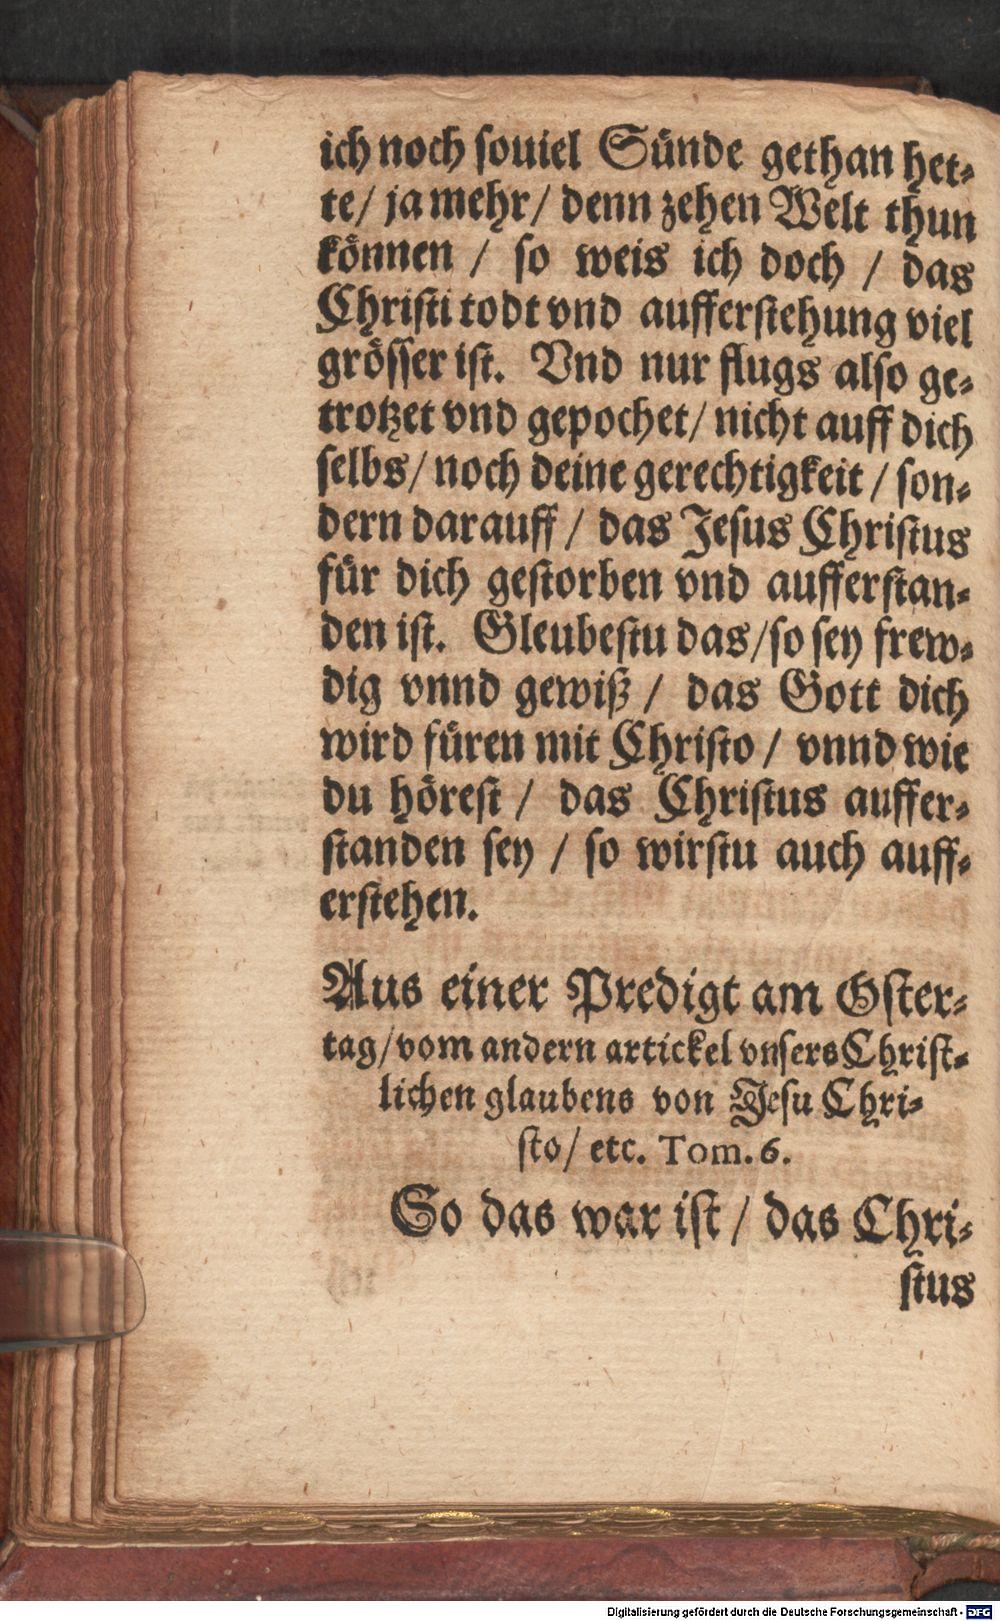 ich noch souiel Sünde gethan het⸗
te/ ja mehr/ denn zehen Welt thun
können / so weis ich doch / das
Christi todt vnd aufferstehung viel
grösser ist. Vnd nur flugs also ge⸗
trotzet vnd gepochet/ nicht auff dich
selbs/ noch deine gerechtigkeit / son⸗
dern darauff / das Jesus Christus
für dich gestorben vnd aufferstan⸗
den ist. Gleubestu das/ so sey frew⸗
dig vnnd gewiß / das Gott dich
wird füren mit Christo / vnnd wie
du hörest / das Christus auffer⸗
standen sey / so wirstu auch auff⸗
erstehen.
Aus einer Predigt am Oster⸗
tag/ vom andern artickel vnsers Christ⸗
lichen glaubens von Jesu Chri⸗
sto/ etc. Tom. 6.
So das war ist / das Chri⸗
stus
Digitalisierung gefördert durch die Deutsche Forschungsgemeinschaft - DFG